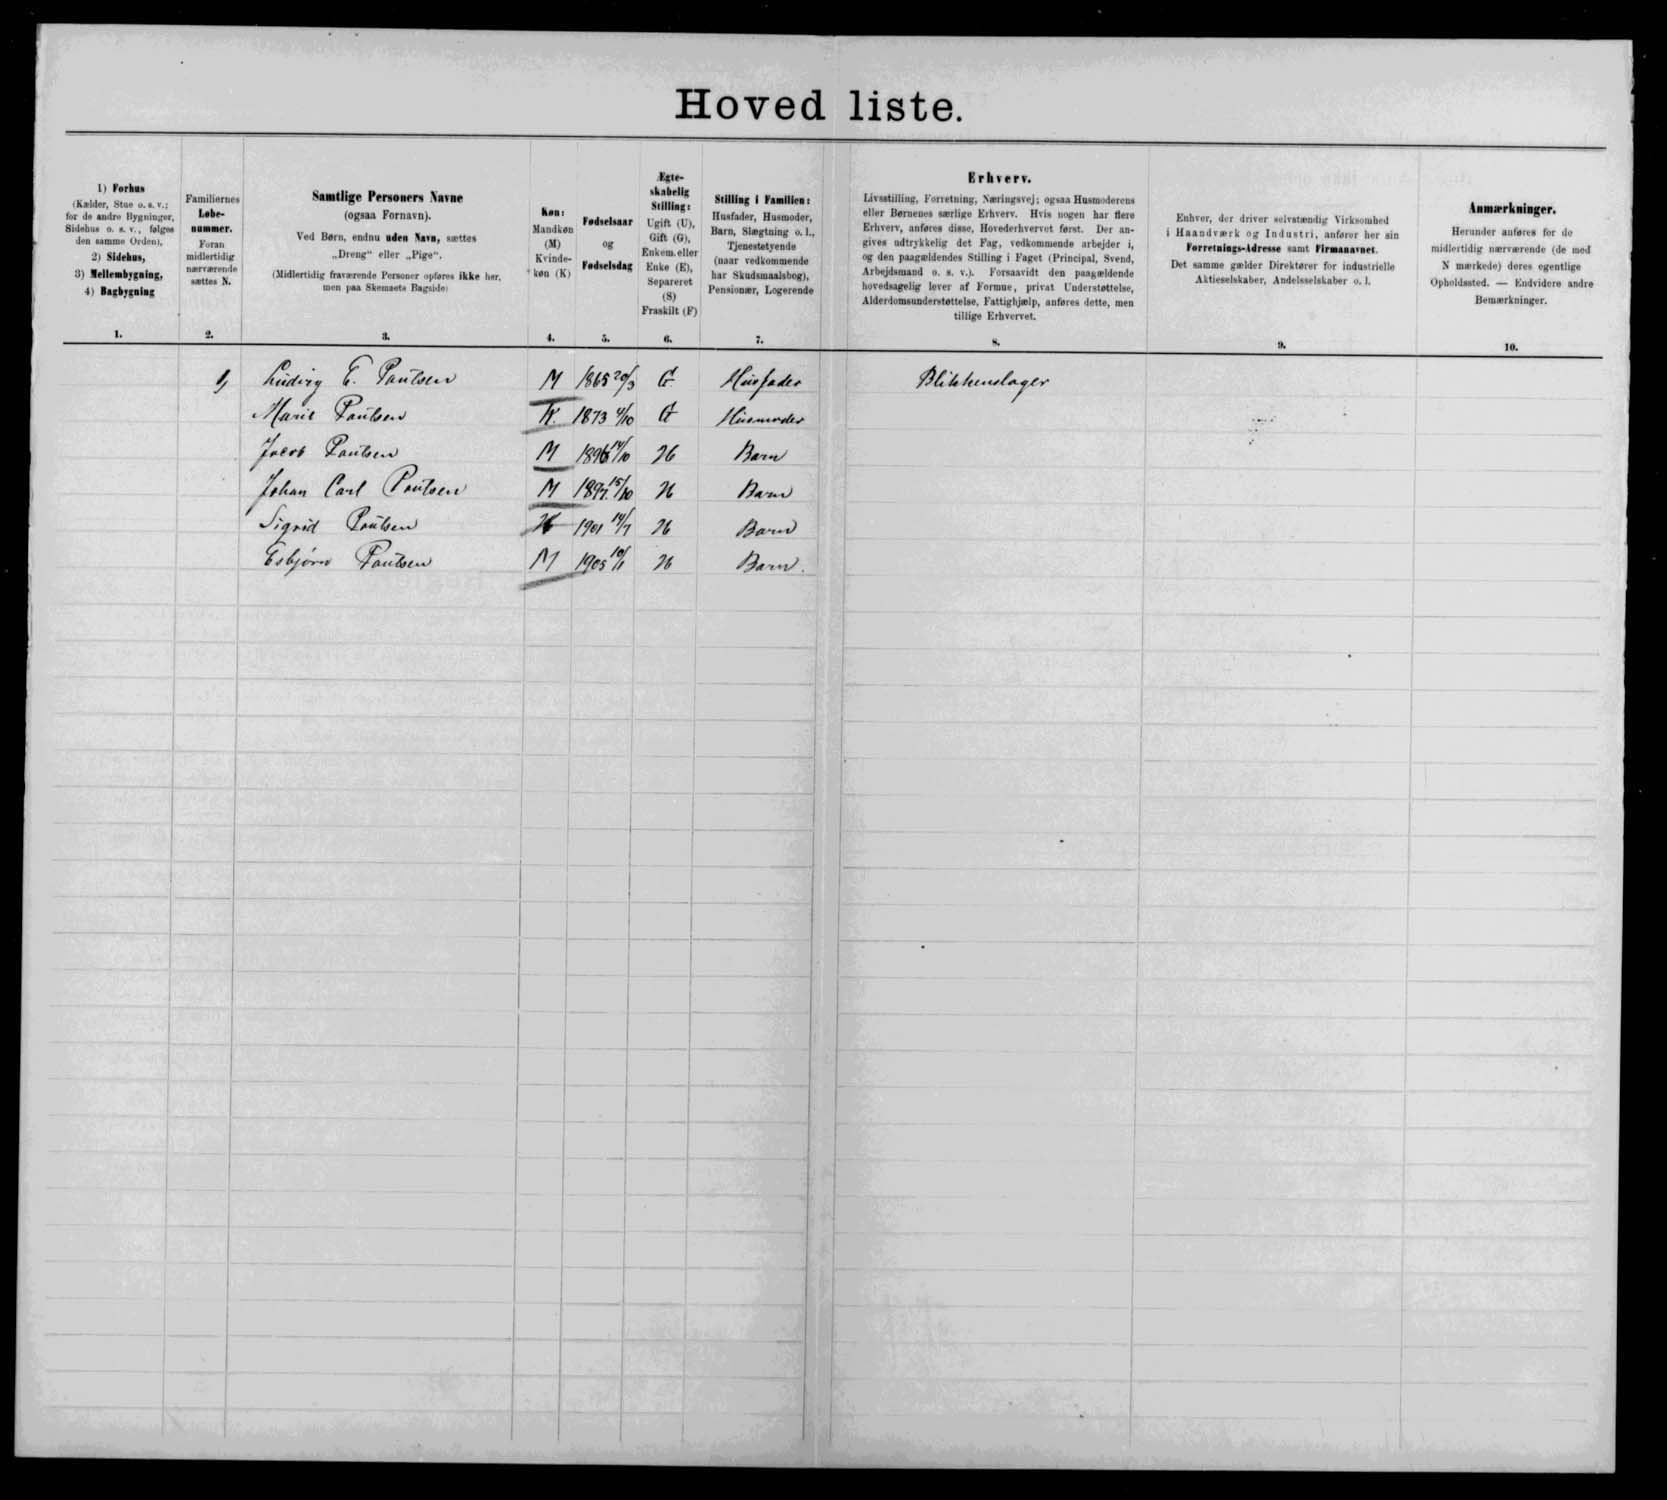 Hoved liste.
1) Forhus
(Kælder, Stue o. s. v.;
for de andre Bygninger,
Sidehus o. s. v., følges
den samme Orden),
2) Sidehus,
3) Mellembygning,
4) Bagbygning
1.
Familiernes
Løbe-
nummer.
Foran
midlertidig
nærværende
sættes N.
2.
Samtlige Personers Navne
(ogsaa Fornavn).
Ved Børn, endnu uden Navn, sættes
„Dreng“ eller „Pige“.
(Midlertidig fraværende Personer opføres ikke her,
men paa Skemaets Bagside)
3.
Køn:
Mandkøn
(M)
Kvinde-
køn (K)
4.
Fødselsaar
og
Fødselsdag
5.
Ægte-
skabelig
Stilling:
Ugift (U),
Gift (G),
Enkem. eller
Enke (E),
Separeret
(S)
Fraskilt (F)
6.
Stilling i Familien:
Husfader, Husmoder,
Barn, Slægtning o. l.,
Tjenestetyende
(naar vedkommende
har Skudsmaalsbog),
Pensionær, Logerende
7.
Erhverv.
Livsstilling, Forretning, Næringsvej; ogsaa Husmoderens
eller Børnenes særlige Erhverv. Hvis nogen har flere
Erhverv, anføres disse, Hovederhvervet først. Der an-
gives udtrykkelig det Fag, vedkommende arbejder i,
og den paagældendes Stilling i Faget (Principal, Svend,
Arbejdsmand o. s. v.). Forsaavidt den paagældende
hovedsagelig lever af Formue, privat Understøttelse,
Alderdomsunderstøttelse, Fattighjælp, anføres dette, men
tillige Erhvervet.
8.
Enhver, der driver selvstændig Virksomhed
i Haandværk og Industri, anfører her sin
Forretnings-Adresse samt Firmanavnet.
Det samme gælder Direktører for industrielle
Aktieselskaber, Andelsselskaber o. l.
9.
Anmærkninger.
Herunder anføres for de
midlertidig nærværende (de med
N mærkede) deres egentlige
Opholdssted. — Endvidere andre
Bemærkninger.
10.
Ludvig E. Paulsen M 1865 20/3 G Husfader Blikkenslager
Marie Paulsen K. 1873 4/10 G Husmoder
Jacob Paulsen M 14/10 U Barn
Johan Carl Paulsen M 1897 15/10 U Barn
Sigrid Paulsen K 1901 14/7 U Barn
Esbjørn Paulsen M 1905 10/1 U Barn.